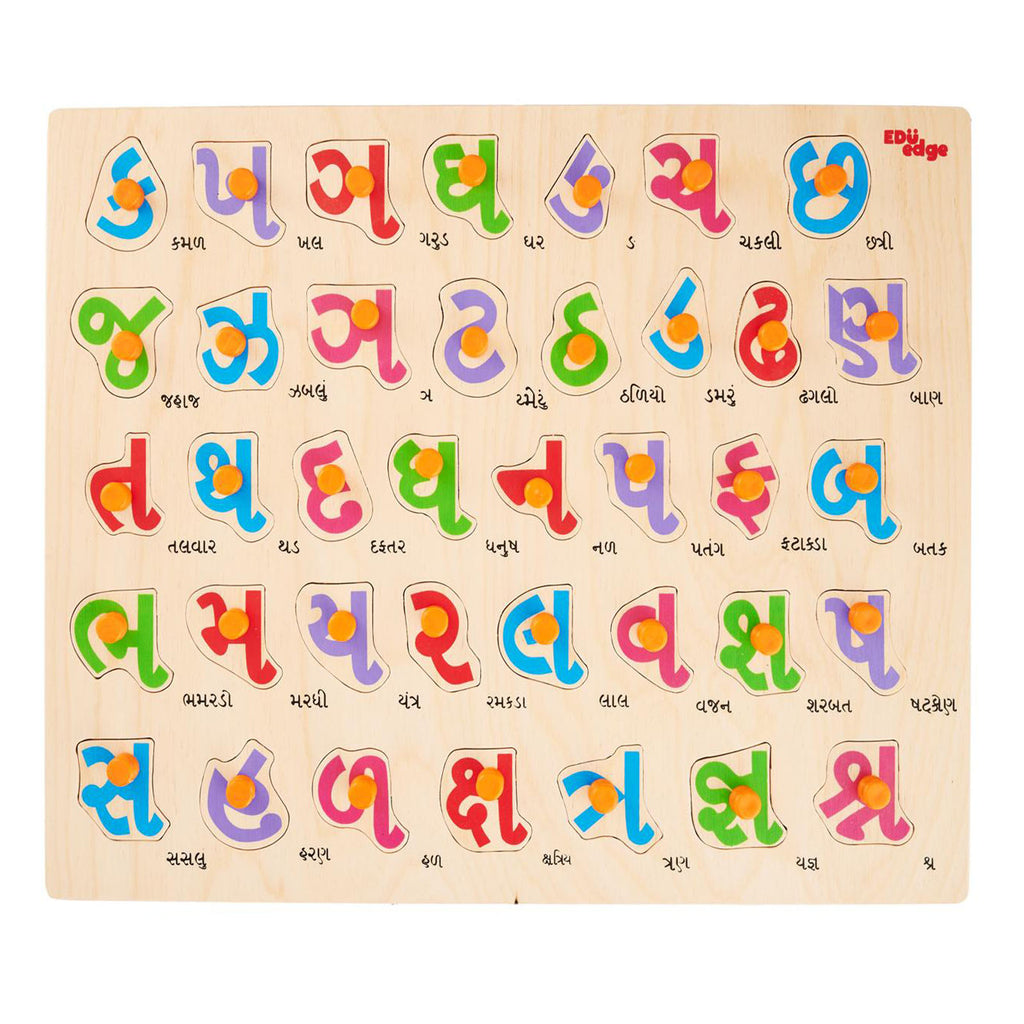 EDU edge
ક ખ ગ ઘ ડ ચ છ
કમળ ખલ ગરુડ ઘર ડ ચકલી છત્રી
જ ઝ ઞ ટ ઠ ડ ઢ ણ
જહાજ ઝબલું ત્ર ટમેટું ઠળિયો ડમરું ઢગલો બાણ
ત થ દ ધ ન પ ફ બ
તલવાર થડ દફતર ધનુષ નળ પતંગ ફટાકડા બતક
ભ મ ય ર લ વ શ ષ
ભમરડો મરઘી યંત્ર રમકડા લાલ વજન શરબત ષટ્કોણ
સ હ ળ ક્ષ ત્ર જ્ઞ શ્ર
સસલુ હરણ હળ ક્ષત્રિય ત્રણ યજ્ઞ શ્ર